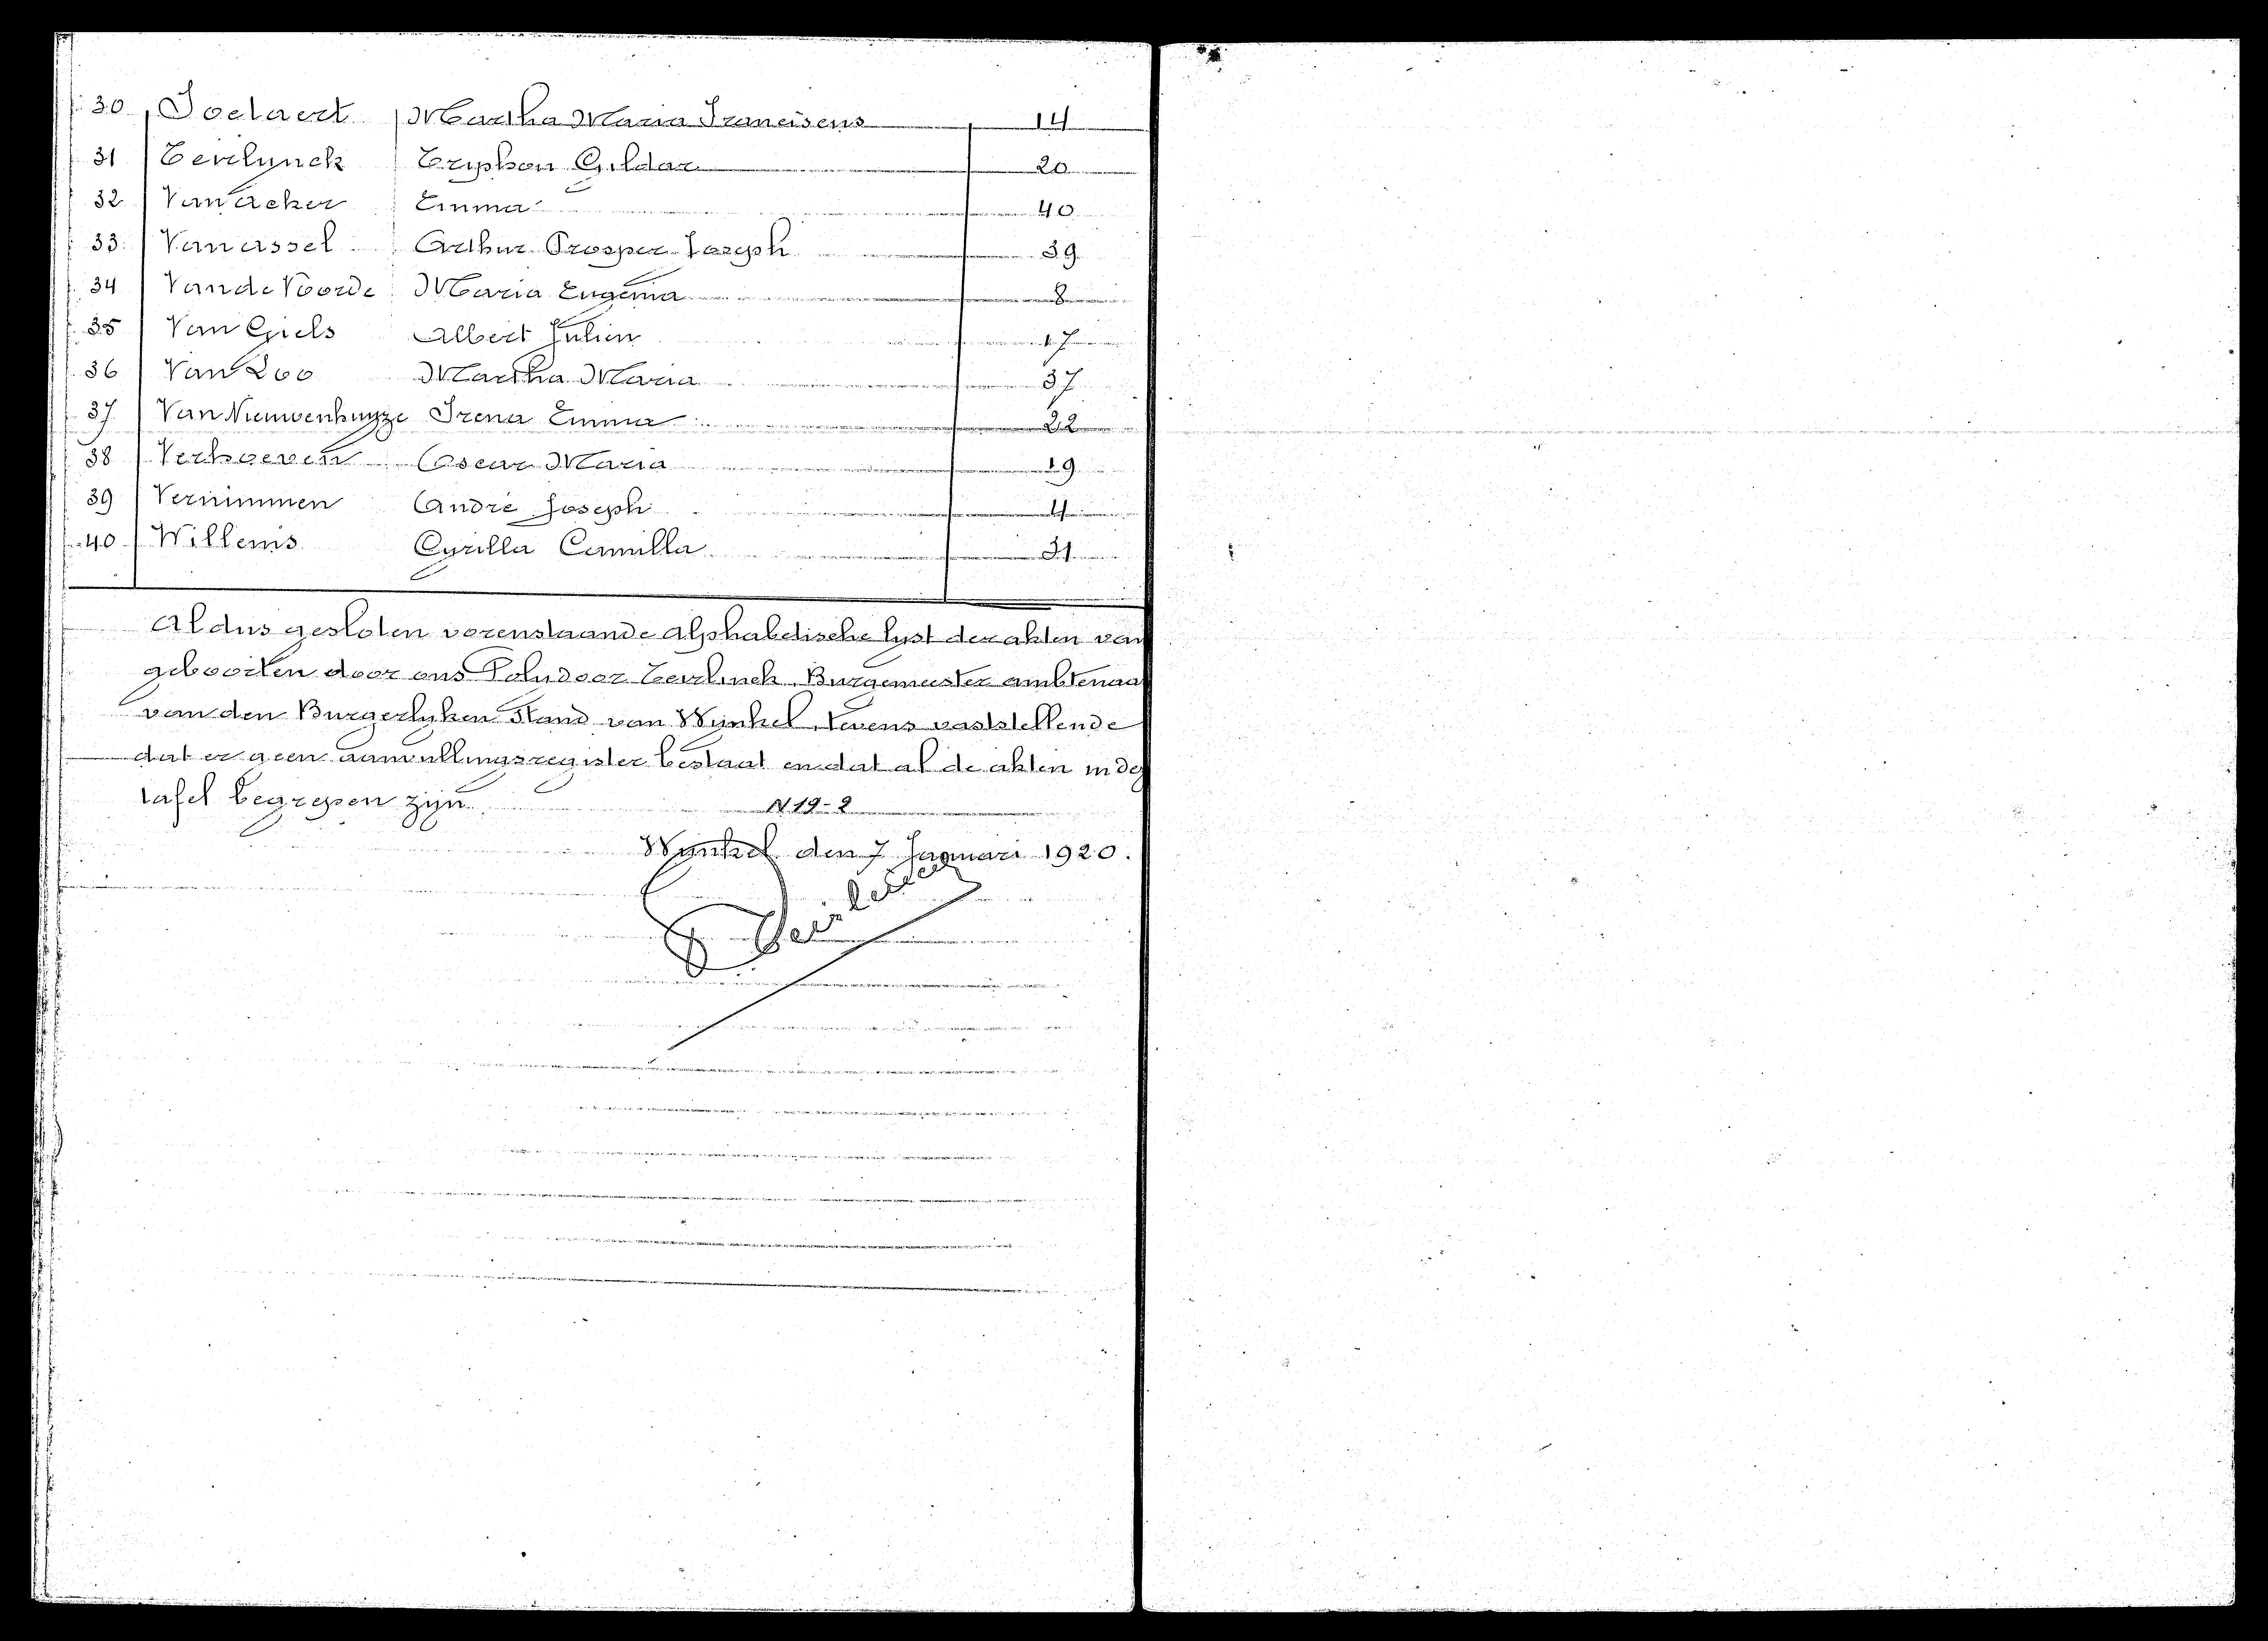 30 Soetaert Martha Maria Franciscus 14
31 Teirlynck Tryphon Gildar 20
32 Van Acker Emma 40
33 Van assel Arthur Prosper Joseph 39
34 Van de Voorde Maria Eugenia 8
35 Van Giels Albert Julien 17
36 Van Loo Martha Maria 37
37 Van Nieuwenhuyze Irena Emma 22
38 Verhoeven Oscar Maria 19
39 Vernimmen André Joseph 4
40 Willems Cyrilla Camilla 31
Aldus gesloten vorenstaande alphabetische lyst der akten van
geboorten door ons Polydoor Teirlinck, Burgemeester ambtenaa
van den Burgerlyken Stand van Wynkel, tevens vaststellende
dat er geen aanvullingsregister bestaat en dat al de akten in de
tafel begrepen zijn.
N 19-2
Wynkel den 7 Januari 1920.